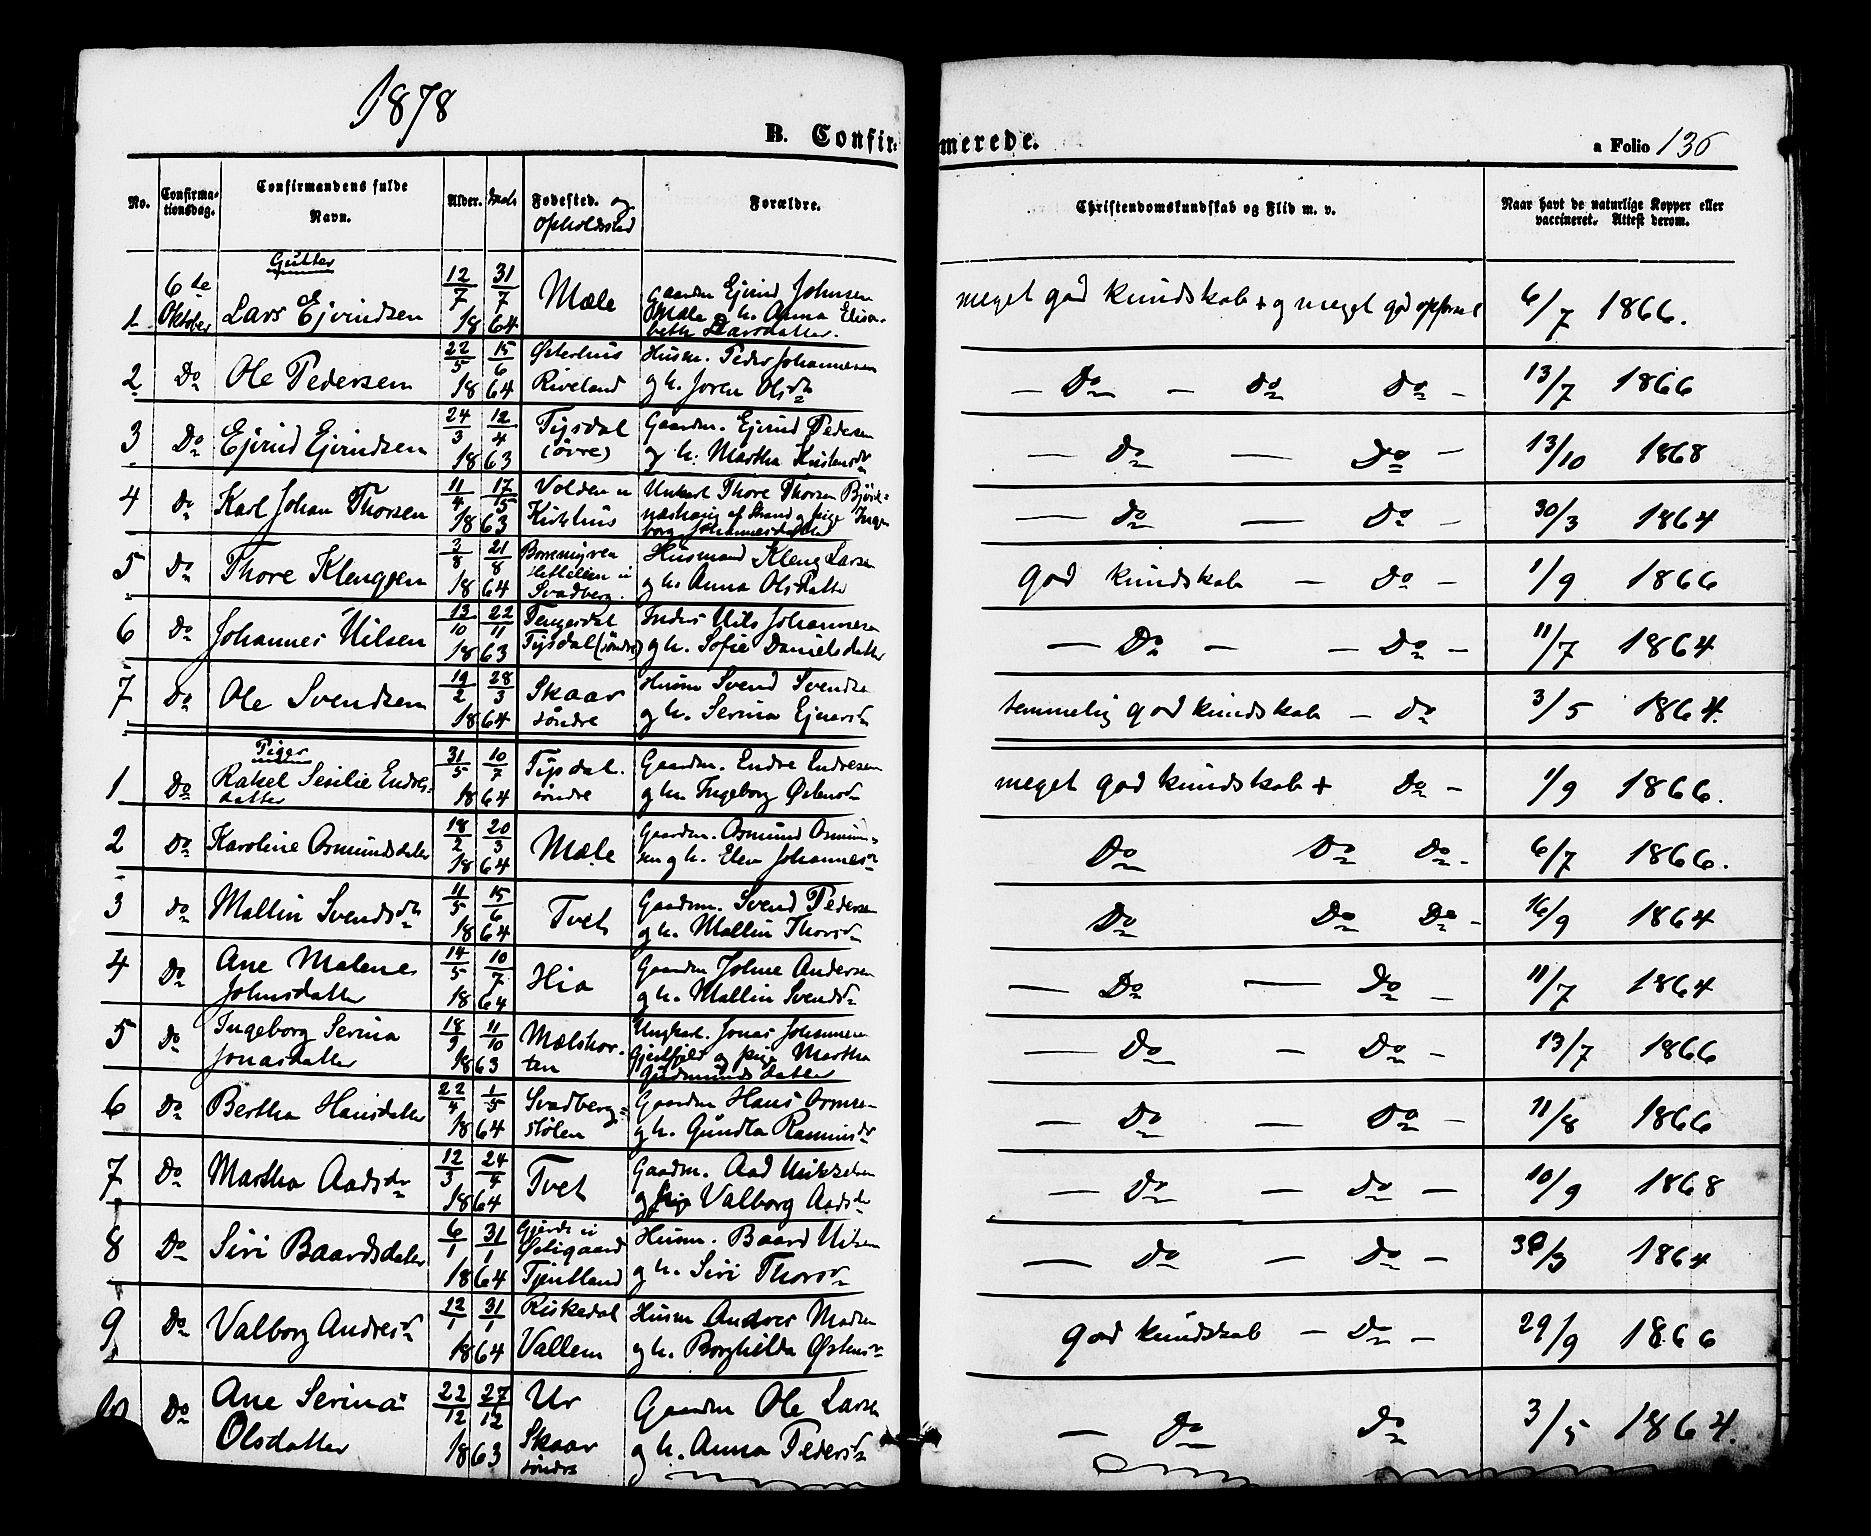 1878
B. Confirmerede.
a Folio 136
No. Confirmationsdag. Confirmandens fulde Navn. Alder. Daab Fødested. og Opholdssted Forældre. Christendomskundskab og Flid m. v. Naar havt de naturlige Kopper eller vaccineret. Attest derom.
Gutter
1 6te Oktober Lars Ejvindsen 12/7 1864 31/7 Mæle Gaardm Ejvind Johnsen Mæle g h. Anna Elisabeth Larsdatter. meget god kundskab + g meget god opførsel 6/7 1866.
2 Do Ole Pedersen 22/5 1864 15/6 Østerhus Riveland Husm. Peder Johannesen og h. Joren Olsdr — Do — Do Do — 13/7 1866
3 Do Ejvind Ejvindsen 24/3 1863 12/4 Tysdal (øvre) Gaardm. Ejvind Pedersen og h. Martha — Do — Do — 13/10 1868
4 Do Karl Johan Thorsen 11/4 1863 17/5 Volden u Kirkhus Unkarl Thore Thorsen af Strand og pige Ingeborg Johannesdatter — Do — Do — 30/3 1864
5 Do Thore Klengsen 3/8 1864 21/8 Borremyren u Svadberg. Husmand Kleng Larsen og h. Anna Olsdatter God kundskab — Do — 1/9 1866
6 Do Johannes Nilsen 13/10 1863 22/11 Tengesdal Tysdal (søndre) Inders Nils Johannesen og h. Sofie Danielsdatter — Do — — Do — 11/7 1864
7 Do Ole Svendsen 19/2 1864 28/3 Skaar søndre Husm Svend Svendse og h. Serina Ejversdr temmelig god kundskab — Do 3/5 1864.
Piger
1 Do Rakel Sesilie Endresdatter 31/5 1864 10/7 Tysdal. søndre Gaardm. Endre Endresen og h. Ingeborg Østensdr meget god kundskab + Do — 1/9 1866.
2 Do Karoline Osmundsdatter 18/2 1864 20/3 Mæle Gaardm. Osmund Osmundsen og h. Elen Johannesdr Do Do Do — 6/7 1866.
3 Do Mallin Svendsdtr 11/5 1864 15/6 Tvet Gaardm. Svend Pedersen og h. Mallin Thorsdr Do Do Do — 16/9 1864
4 Do Ane Malene Johnsdatter 14/5 1864 10/7 Hia Gaardm Johne Andersen og h. Mallin Svendsdr — Do — Do — 11/7 1864
5 Do Ingeborg Serina Jonasdatter 18/9 1863 11/10 Mælshorten Ungkarl. Jonas Johannesen Gjeilfjeld og pige Martha Gudmundsdatter — Do — Do — 13/7 1866
6 Do Bertha Hansdatter 22/4 1864 1/5 Svadbergstølen Gaardm Hans Osmsen og h. Gundla Rasmusdr — Do — Do — 11/8 1866
7 Do Martha Aadsdr 12/3 1864 24/4 Tvet Gaardm. Aad og pige Valborg Aadsdr — Do — Do — 10/9 1868
8 Do Siri Baardsdatter 6/1 1864 31/1 Gjerde u Østigaard Tjentland Husm. Baard Nilsen og h. Siri Thorsdr — Do — Do — 30/3 1864
9 Do Valborg Andresdr 12/1 1864 31/1 Riskedal Vallem Husm Andres Madsen og h. Borghilda Østensdr god kundskab — Do — 29/9 1866
10 Do Ane Serina Olsdatter 22/12 1863 27/12 Ur Skaar søndre Gaardm Ole Larsen og h. Anna Pedersdr — Do Do 3/5 1864.